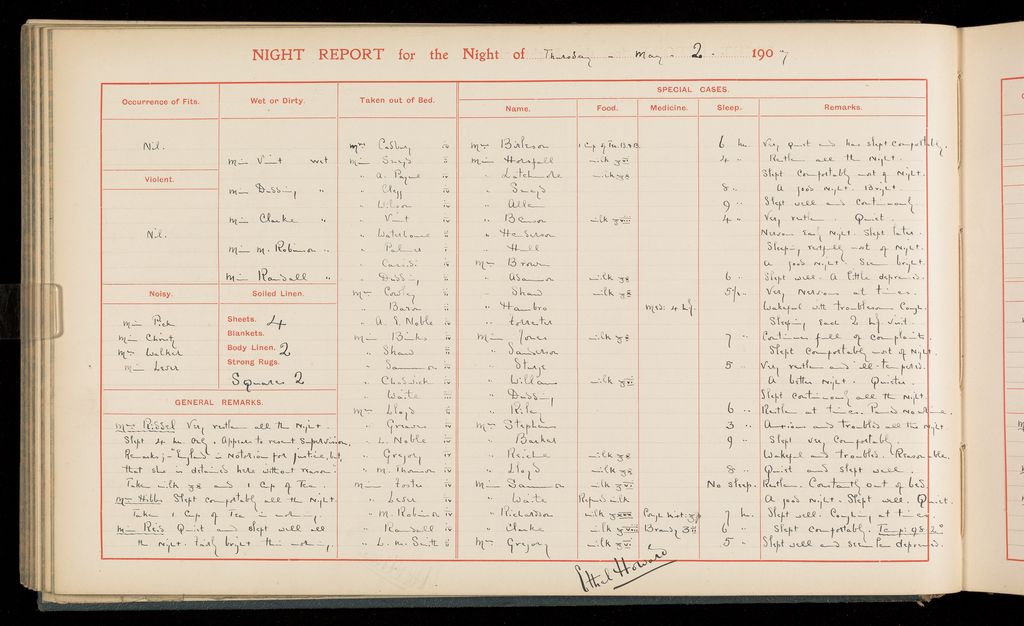 NIGHT REPORT for the Night of Thursday - May - 2 . 1907
Occurrence of Fits.
Nil.
Violent.
Nil.
Noisy.
Miss Pick
Miss
Mrs Walker
Miss Lesur
Wet or Dirty.
Miss Vint wet
Miss "
Miss Clarke "
Miss M. Robinson "
Miss Randall "
Soiled Linen.
Sheets. 4
Blankets.
Body Linen. 2
Strong Rugs.
Squares 2
GENERAL REMARKS.
Mrs Very restless all the night.
Slept 4 hrs only. Appears to resent supervision.
Remarks; - "England is notorious for justice, but
that she is detained here without reason"
Taken milk and 1 Cup of Tea.
Mrs Hibbs Slept comfortably all the night.
Taken 1 Cup of Tea in morning.
Miss Reis Quiet and slept well all
the night. Fairly bright this morning.
Taken out of Bed.
Mrs Cadbury iv
Miss iv
" A. Payne iv
" Clegg iv
" Wilson iv
" Vint iv
" Waterhouse
" Palmer
"
"
Mrs Cowley
" Baron
" A. E. Noble iv
Miss Binks iv
" Shaw
"
" Chadwick
" Waite
Mrs Lloyd
" Greaves
" L. Noble
" Gregory
" M. Thomson
Miss Foster
" Lesur
" M. Robinson iv
" Randall iv
" L. M. Smith
SPECIAL CASES.
Name. Food. Medicine. Sleep. Remarks.
Mrs 6 hrs. Very quiet and has slept comfortably.
Miss Horsfall milk 4 " Restless all the night.
" milk Slept comfortably most of night.
" 8 " A good night. Bright.
" Allen 9 " Slept well and continuously
" Benson milk 4 " Very restless. Quiet.
" Henderson Nervous early night. Slept later.
" Hull Sleeping restfully most of night.
Mrs Brown A good night. Seems bright.
" milk 6 " Slept well. A little depressed.
" Shaw milk Very nervous at times.
" Hambro Wakeful with troublesome cough.
" Forrester Sleeping each 2 hly. visit.
Miss Jones milk 7 " Continues full of complaints.
" Sanderson Slept comfortably most of night.
" Sturge 5 " Very restless and ill-tempered.
" Williams milk A better night. Quieter.
" Slept continuously all the night.
" Riley 6 " Restless at times.
Mrs Stephens 3 " Anxious and troubled all the night
" Barker 9 " Slept very comfortably.
" milk Wakeful and troubled. Reasonable.
" Lloyd milk 8 " Quiet and slept well.
Miss milk No sleep. Restless. Constantly out of bed.
" Waite Refused milk A good night. Slept well. Quiet.
" Richardson milk Cough Mist. 7 hrs. Slept well. Coughing at times.
" Clarke milk Brandy 6 " Slept comfortably. Temp: 98.2°
Mrs Gregory milk 5 " Slept well and seems less depressed.
Ethel Howard